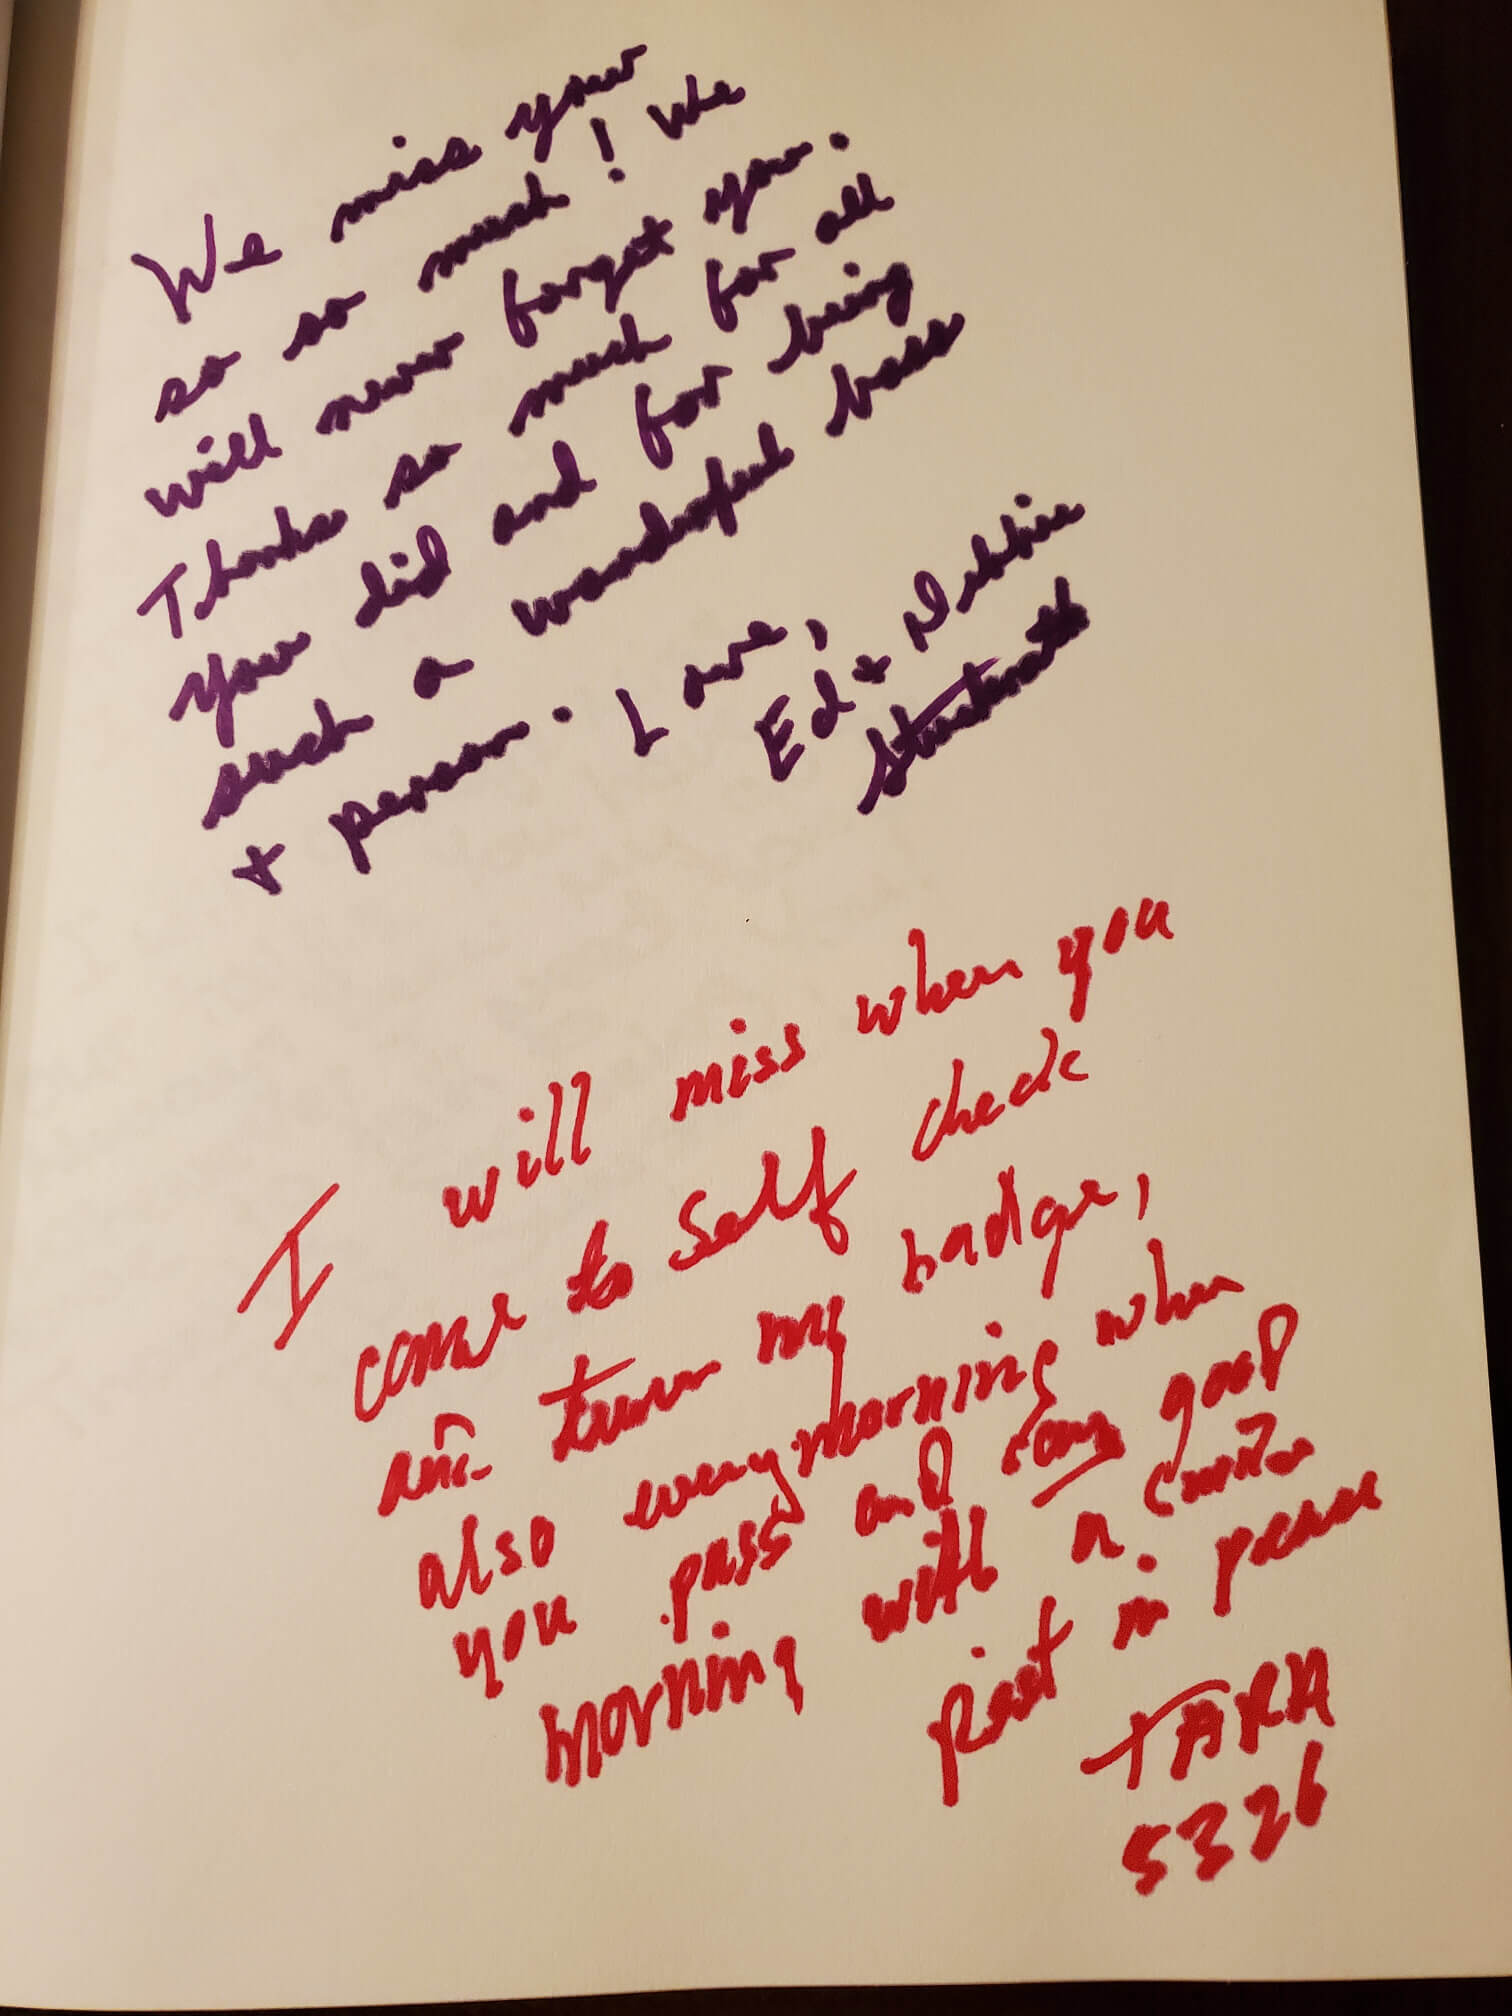 We miss you
so so much! We
will never forget you.
Thanks so much for all
you did and for being
such a wonderful boss
+ person. Love,
Ed + Debbie
I will miss when you
come to Self check
and turn my badge,
also everymorning when
you pass and say good
morning with a smile
Rest in peace
TARA
5326